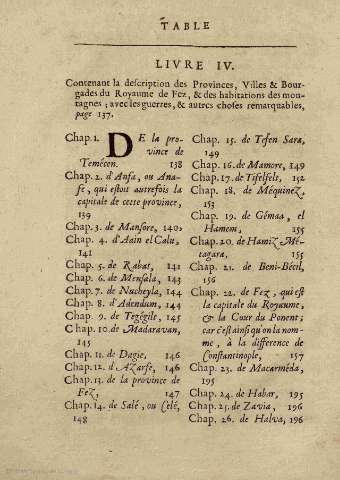 TABLE
LIVRE IV.
Contenant la description des Provinces, Villes & Bour-
gades du Royaume de Fez, & des habitations des mon-
tagnes; avec les guerres, & autres choses remarquables,
page 137.
Chap. 1. DE la pro-
vince de
Temécen. 138
Chap. 2. d'Anfa, ou Ana-
fe, qui estoit autrefois la
capitale de cette province,
139
Chap. 3. de Mansore, 140
Chap. 4. d'Ain el Calu,
141
Chap. 5. de Rabat, 141
Chap. 6. de Mensala, 143
Chap. 7. de Nucheyla, 144
Chap. 8. d'Adendum, 144
Chap. 9. de Tegégilt, 145
Chap. 10. de Madaravan,
145
Chap. 11. de Dagie, 146
Chap. 12. d'Azarfe, 146
Chap. 13. de la province de
Fez, 147
Chap. 14. de Salé, ou Célé,
148
Chap. 15. de Tefen Sara,
149
Chap. 16. de Mamore, 149
Chap. 17. de Tifelfelt, 152
Chap. 18. de Méquinez,
153
Chap. 19. de Gémaa, el
Hamem, 155
Chap. 20. de Hamiz Mé-
tagara, 155
Chap. 21. de Beni-Bécil,
156
Chap. 22. de Fez, qui est
la capitale du Royaume,
& la Cour du Ponent;
car c'est ainsi qu'on la nom-
me, à la différence de
Constantinople, 157
Chap. 23. de Macarméda,
195
Chap. 24. de Habar, 195
Chap. 25. de Zavia, 196
Chap. 26. de Halva, 196